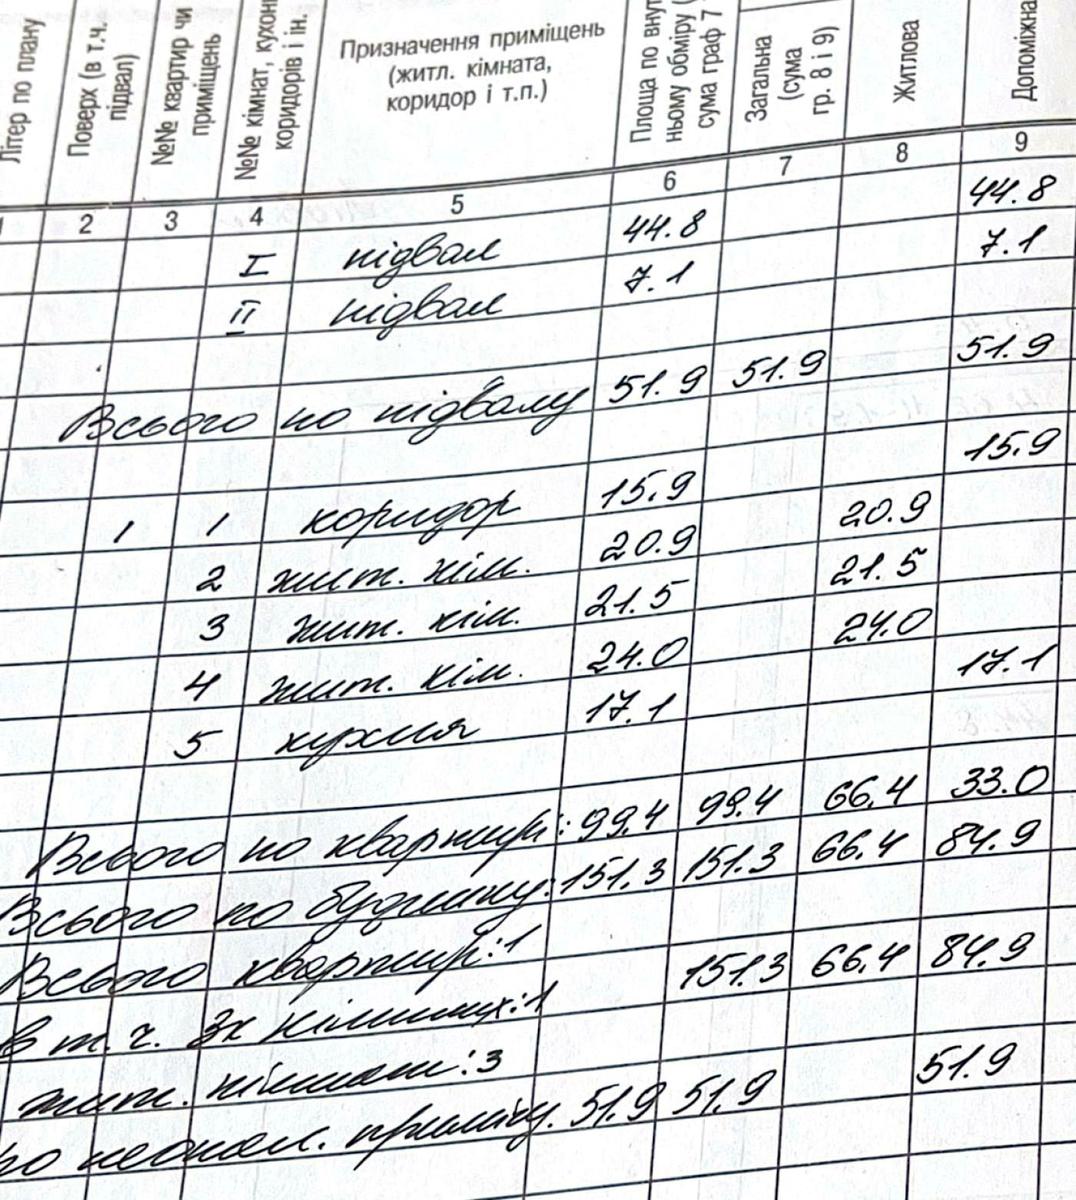 Літер по плану
Поверх (в т.ч. підвал)
№№ квартир чи приміщень
№№ кімнат, кухонь коридорів і ін.
Призначення приміщень
(житл. кімната,
коридор і т.п.)
Площа по внут
ньому обміру (
сума граф 7
Загальна
(сума
гр. 8 і 9)
Житлова
Допоміжна
1 2 3 4 5 6 7 8 9
I підвал 44.8 44.8
II підвал 7.1 7.1
Всього по підвалу 51.9 51.9 51.9
1 1 коридор 15.9 15.9
2 жит. кім. 20.9 20.9
3 жит. кім. 21.5 21.5
4 жит. кім. 24.0 24.0
5 кухня 17.1 17.1
Всього по квартирі: 99.4 99.4 66.4 33.0
Всього по будинку: 151.3 151.3 66.4 84.9
Всього квартир: 1 151.3 66.4 84.9
в т.ч. 3х кімнатних: 1
жит. кімнат: 3
по неоцин. приміщ. 51.9 51.9 51.9